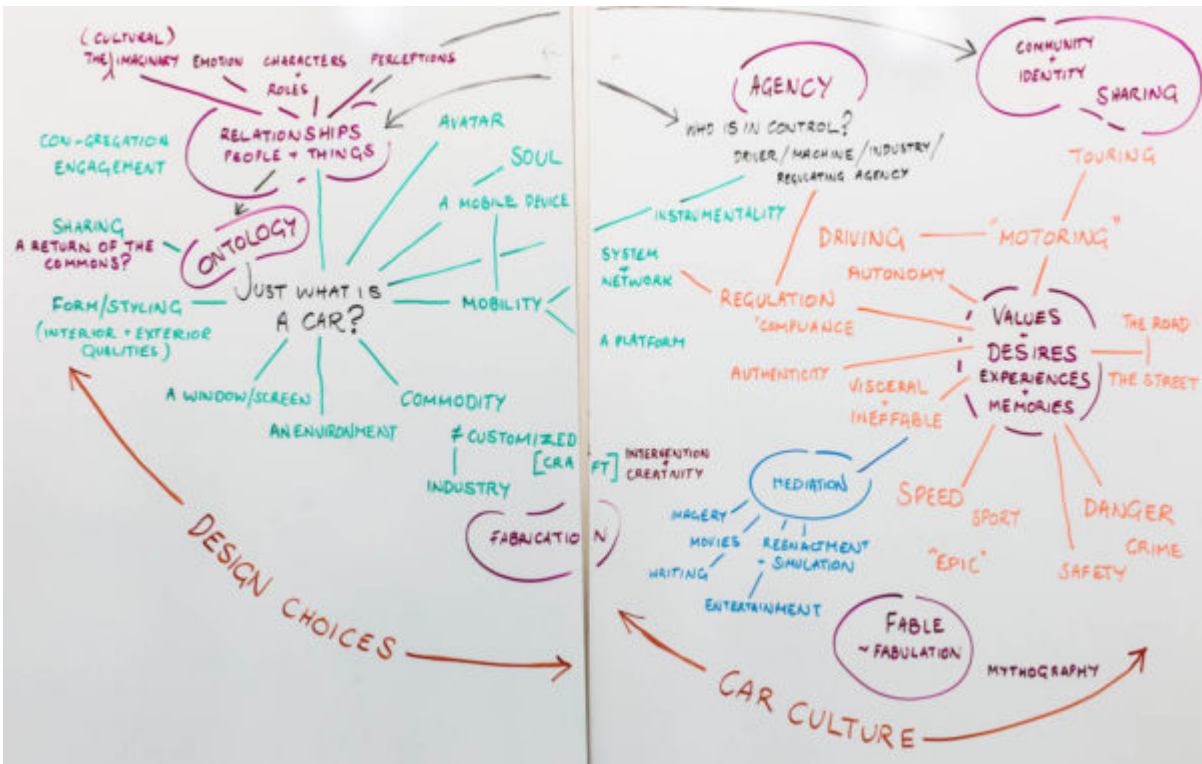 (CULTURAL)
THE IMAGINARY
EMOTION
CHARACTERS
+
ROLES
PERCEPTIONS
RELATIONSHIPS
PEOPLE + THINGS
CON-GREGATION
ENGAGEMENT
AVATAR
SOUL
A MOBILE DEVICE
SHARING
A RETURN OF THE
COMMONS?
ONTOLOGY
JUST WHAT IS
A CAR?
MOBILITY
FORM/STYLING
(INTERIOR + EXTERIOR
QUALITIES)
A WINDOW/SCREEN
AN ENVIRONMENT
COMMODITY
≠ CUSTOMIZED
[CRAFT]
INDUSTRY
INTERVENTION
+
CREATIVITY
FABRICATION
DESIGN CHOICES
AGENCY
WHO IS IN CONTROL?
DRIVER/MACHINE/INDUSTRY/
REGULATING AGENCY
INSTRUMENTALITY
SYSTEM
+
NETWORK
A PLATFORM
COMMUNITY
+
IDENTITY
SHARING
TOURING
DRIVING
"MOTORING"
AUTONOMY
REGULATION
+ COMPLIANCE
VALUES
+
DESIRES
EXPERIENCES
+
MEMORIES
THE ROAD
THE STREET
AUTHENTICITY
VISCERAL
+
INEFFABLE
MEDIATION
IMAGERY
MOVIES
WRITING
REENACTMENT
+ SIMULATION
ENTERTAINMENT
SPEED
SPORT
"EPIC"
DANGER
CRIME
SAFETY
FABLE
~ FABULATION
MYTHOGRAPHY
CAR CULTURE